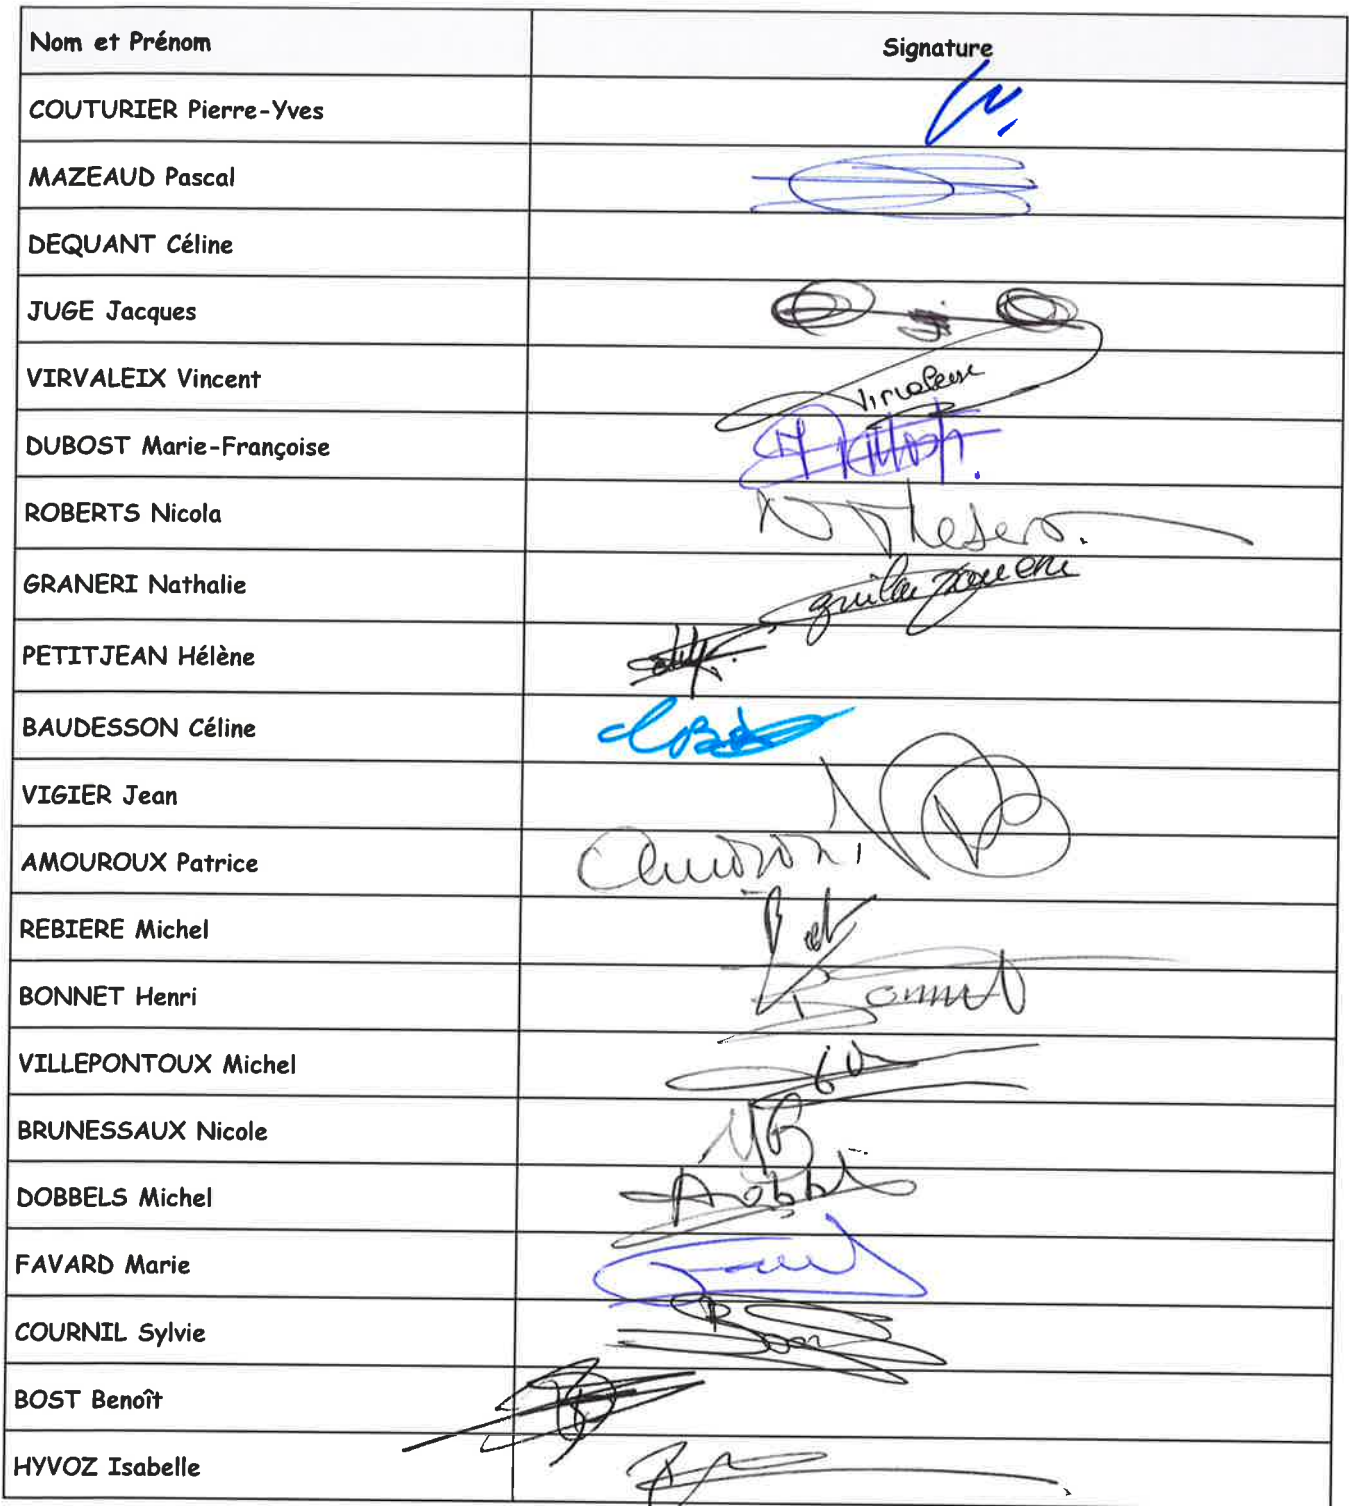 Nom et Prénom
Signature
COUTURIER Pierre-Yves
MAZEAUD Pascal
DEQUANT Céline
JUGE Jacques
VIRVALEIX Vincent
Virvaleix
DUBOST Marie-Françoise
ROBERTS Nicola
GRANERI Nathalie
PETITJEAN Hélène
BAUDESSON Céline
VIGIER Jean
AMOUROUX Patrice
REBIERE Michel
BONNET Henri
Bonnet
VILLEPONTOUX Michel
BRUNESSAUX Nicole
NB
DOBBELS Michel
FAVARD Marie
COURNIL Sylvie
BOST Benoît
HYVOZ Isabelle